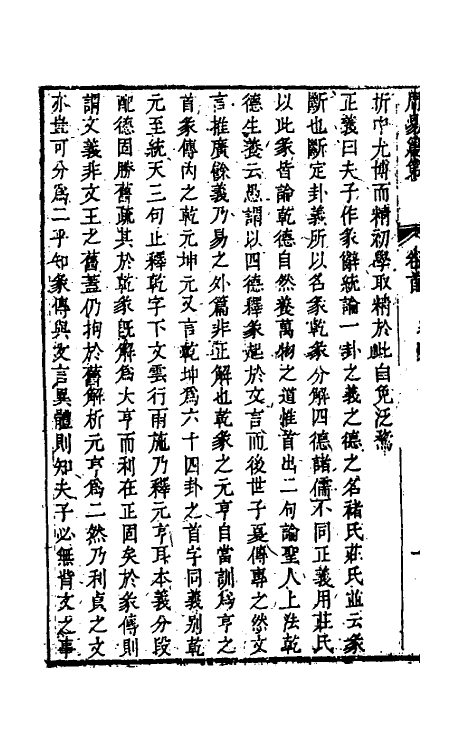 折中尤博而精初學取精於此自免泛騖
正義曰夫子作彖辭統論一卦之義之德之名褚氏莊氏並云彖
斷也斷定卦義所以名彖乾彖分解四德諸儒不同正義用莊氏
以此彖皆論乾德自然養萬物之道惟首出二句論聖人上法乾
德生養云愚謂以四德釋彖起於文言而後世子夏傳專之然文
言推廣餘義乃易之外篇非正解也乾彖之元亨自當訓爲亨之
首彖傳內之乾元坤元又言乾坤爲六十四卦之首字同義别乾
元至統天三句止釋乾字下文雲行雨施乃釋元亨耳本義分段
配德固勝舊疏其於乾彖旣解爲大亨而利在正固矣於彖傳則
謂文義非文王之舊蓋仍拘於舊解析元亨爲二然乃利貞之文
亦豈可分爲二乎知彖傳與文言異體則知夫子必無背文之事